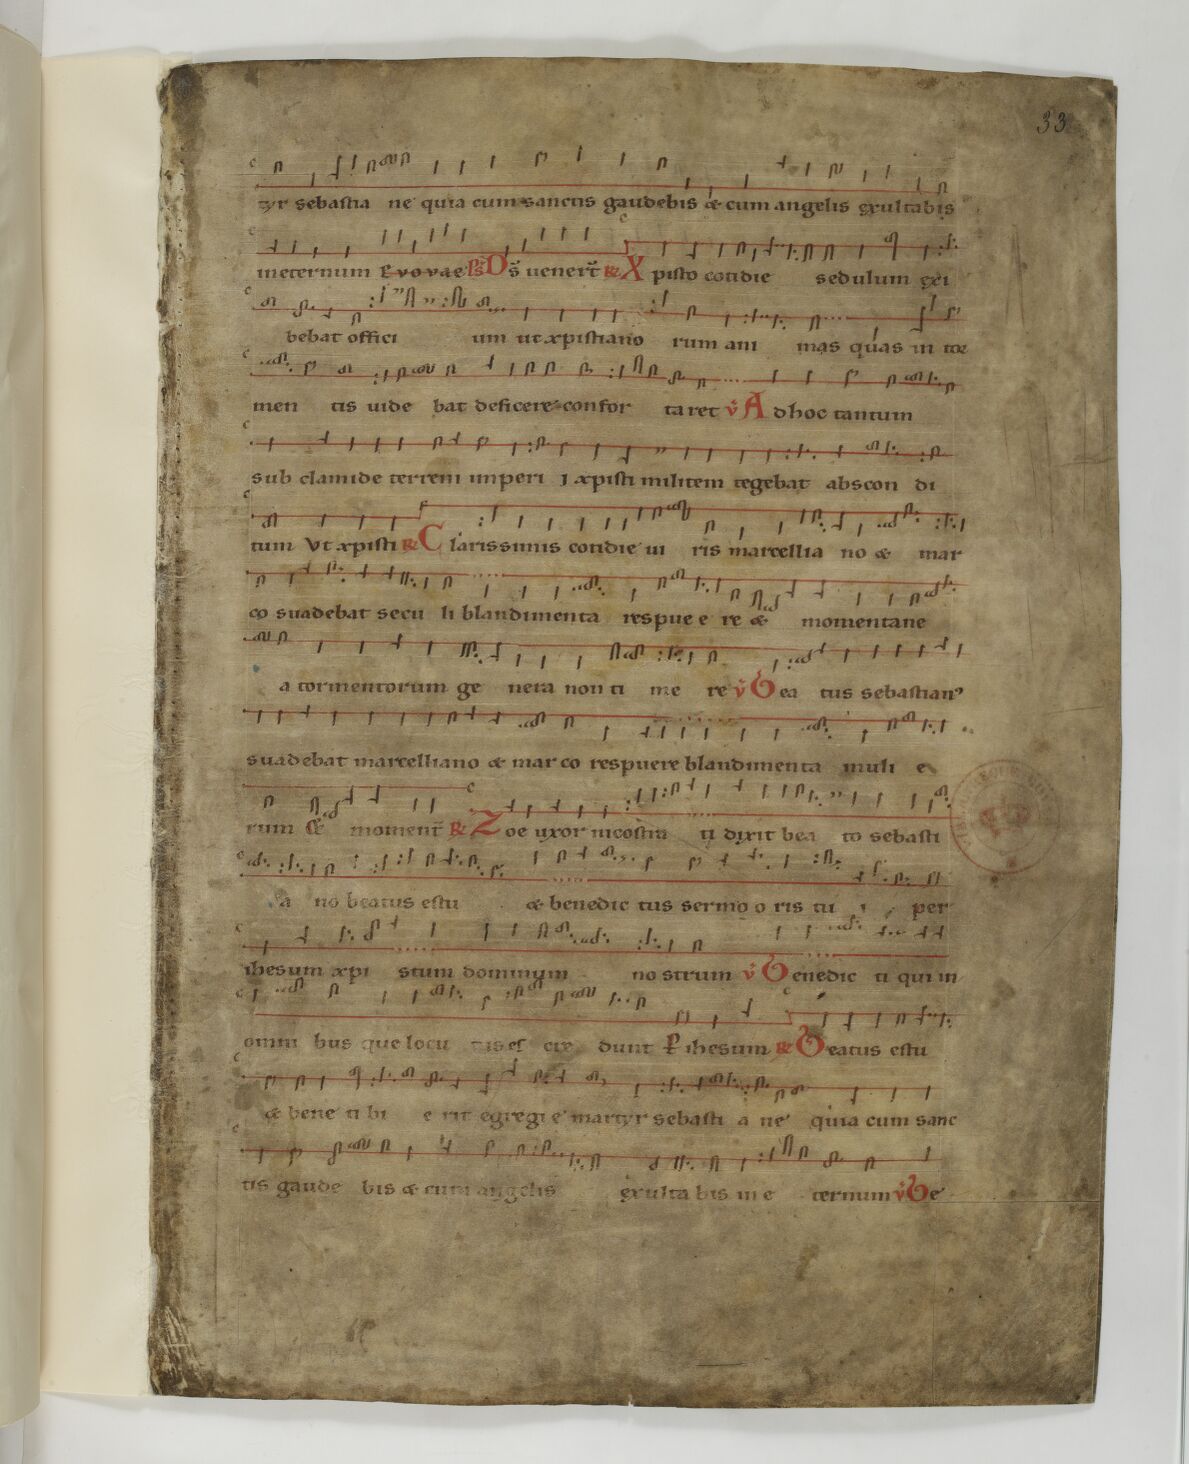 33
tyr sebastia ne quia cum sanctis gaudebis & cum angelis exultabis
ineternum Evovae Ps D s̄ uenert̄ R X pisto cotidie sedulum exi
bebat offici um ut xpistiano rum ani mas quas in tor
men tis uide bat deficere confor taret v A dhoc tantum
sub clamide terreni imperi i xpisti militem tegebat abscon di
tum Vt xpisti R C larissimis cotidie ui ris marcellia no & mar
co suadebat secu li blandimenta respue e re & momentane
a tormentorum ge nera non ti me re v B ea tus sebastian'
suadebat marcelliano & mar co respuere blandimenta muli e
rum & moment̄ R Z oe uxor nicostra ti dixit bea to sebasti
a no beatus es tu & benedic tus sermo o ris tu i per
ihesum xpi stum dominum no strum v B enedic ti qui in
omni bus que locu tus es cre dunt P ihesum R B eatus es tu
& bene ti bi e rit egregi e martyr sebasti a ne quia cum sanc
tis gaude bis & cum angelis exulta bis in e ternum v B e